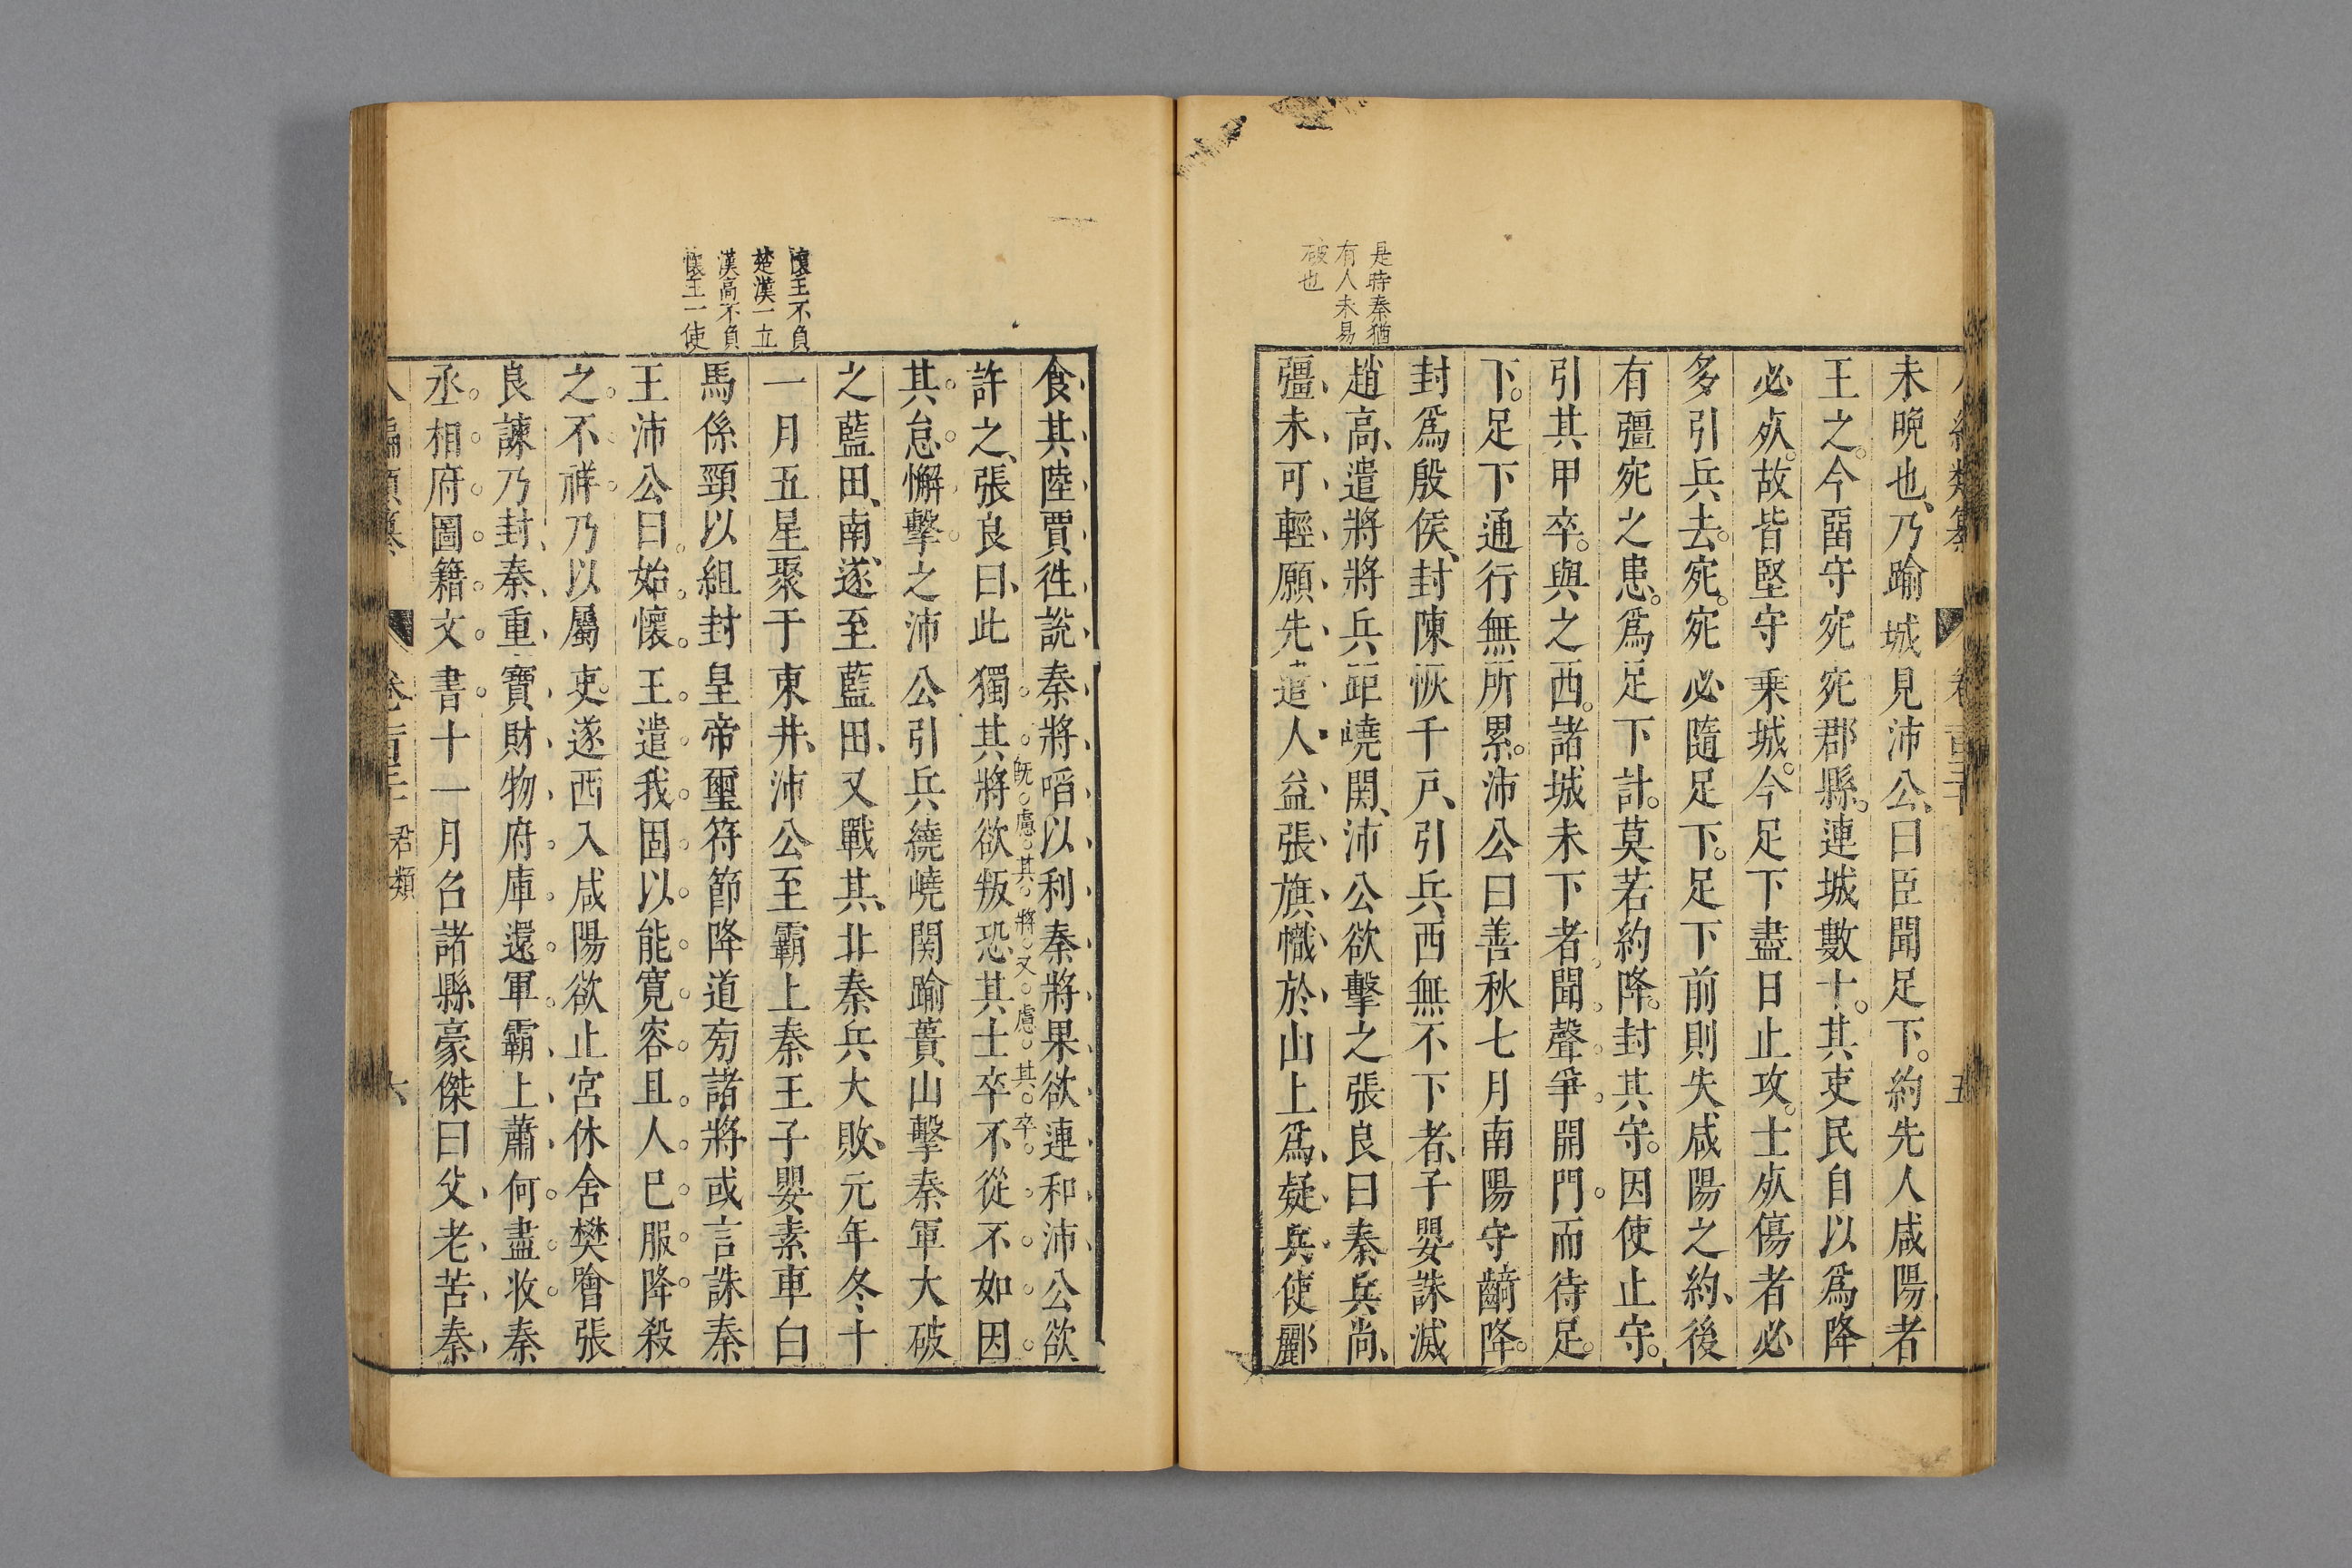 八編類纂
卷一百二十
五
是時秦猶
有人未易
破也
未晩也、乃踰城見沛公、曰臣聞足下。約先人咸陽者
王之。今畱守宛宛郡縣。連城數十。其吏民自以爲降
必𣦸。故皆堅守乗城。今足下盡日止攻。士𣦸傷者必
多引兵去。宛。宛必隨足下。足下前則失咸陽之約、後
有彊宛之患。爲足下計。莫若約降。封其守。因使止守。
引其甲卒。與之西。諸城未下者聞聲爭開門。而待足。
下。足下通行無所累。沛公曰善秋七月南陽守齮降。
封爲殷侯、封陳恢千戶、引兵西無不下者、子嬰誅滅
趙高、遣將將兵距嶢関、沛公欲擊之張良曰秦兵尚、
彊、未、可、輕、願、先、遣、人、益、張、旗、幟、於、山、上、爲、疑、兵、使酈
懷王不負
楚漢一立
漢高不負
懷王一使
食、其、陸、賈、徃、說、秦、將、啗、以、利、秦、將、果、欲、連、和、沛、公、欲
旣。慮。其。將。又。慮。其。卒。
許之、張良曰、此獨。其。將。欲。叛。恐。其。士。卒。不。從。不。如。因。
其。怠。懈。擊。之沛公引兵繞嶢関踰蕢山擊秦軍大破
之藍田、南、遂至藍田、又戰其、北秦兵大敗、元年冬十
一月五星聚于東井、沛公至霸上秦王子嬰素車白
馬係頸以組封皇帝璽符節降道㫄諸將或言誅秦
王沛公曰。始。懷。王。遣。我。固。以。能。寛。容。且。人。巳。服。降。殺
之。不。祥。乃以屬吏。遂西入咸陽欲止宮休舍樊噲張
良諫乃封、秦、重、寶、財、物、府、庫、還、軍、霸、上、蕭、何。盡。收。秦
丞。相。府。圖。籍。文。書。十一月召諸縣豪傑曰父、老、苦、秦、
八編類纂
卷一百二十
君類
六